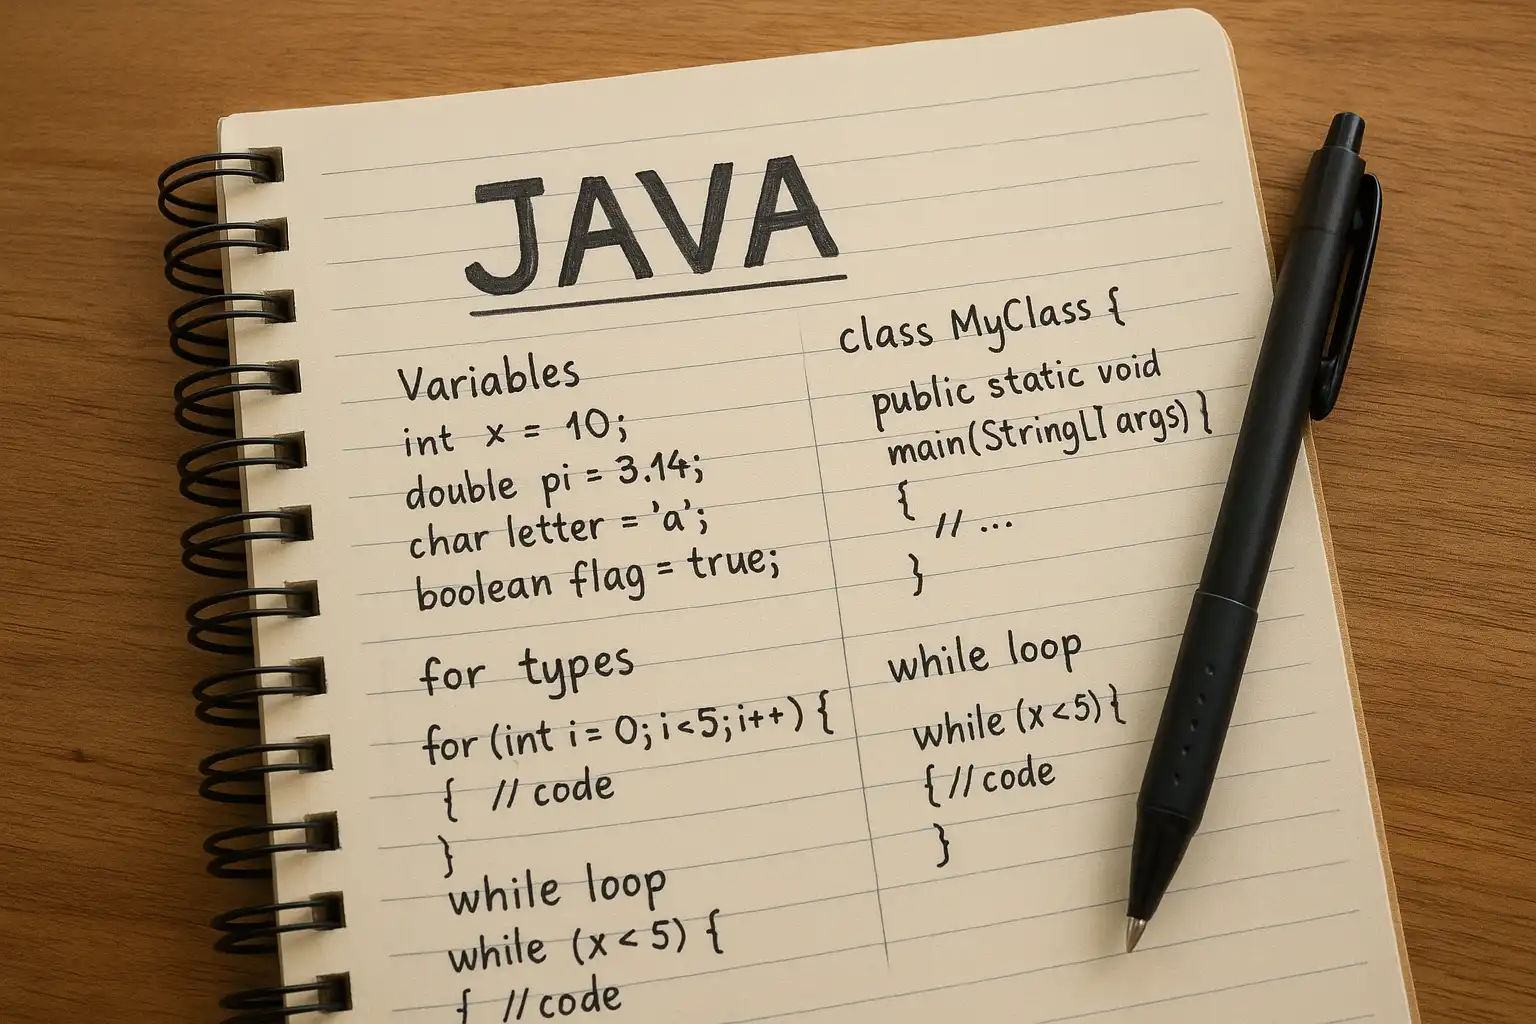 JAVA
Variables
int x = 10;
double pi = 3.14;
char letter = 'a';
boolean flag = true;
for types
for (int i = 0; i<5; i++) {
{ // code
}
while loop
while (x < 5) {
{ // code
class MyClass {
public static void
main(String[] args) }
{
// ...
}
while loop
while (x<5) {
{ // code
}